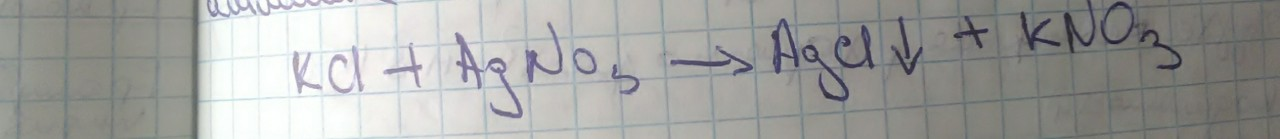 KCl + AgNO₃ → AgCl↓ + KNO₃